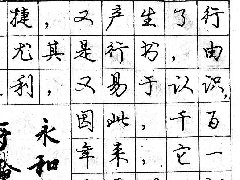 捷，又产生了行
尤其是行书，由
利，又易于认识，
因此，千百
年来，它一
永和